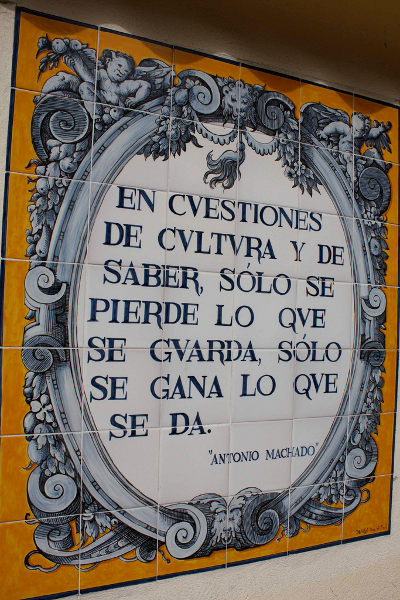 EN CVESTIONES
DE CVLTVRA Y DE
SABER, SÓLO SE
PIERDE LO QVE
SE GVARDA, SÓLO
SE GANA LO QVE
SE DA.
"ANTONIO MACHADO"